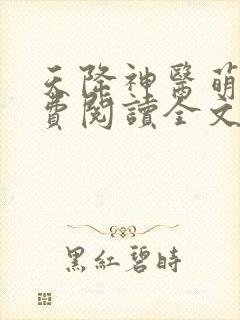 天降神醫萌
費閱讀全文
黑紅碧時